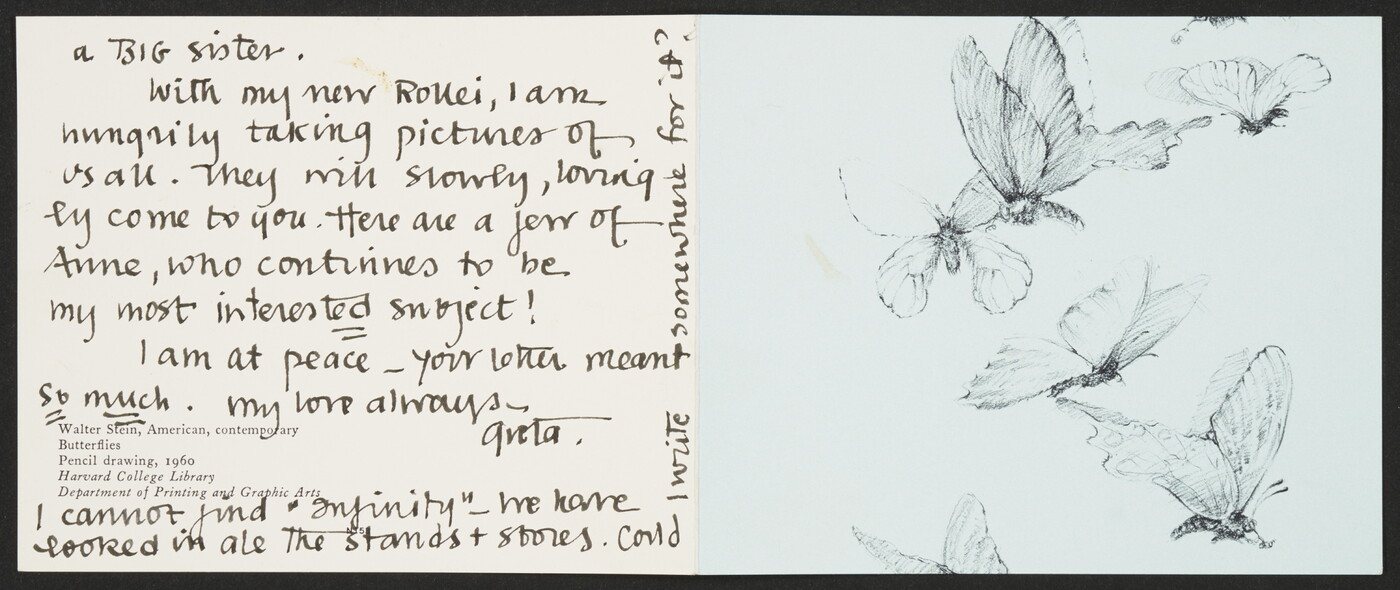 a BIG sister.
With my new Rollei, I am
hungrily taking pictures of
us all. They will slowly, loving
ly come to you. Here are a few of
Anne, who continues to be
my most interested subject!
I am at peace – your letter meant
so much. my love always –
Greta.
Walter Stein, American, contemporary
Butterflies
Pencil drawing, 1960
Harvard College Library
Department of Printing and Graphic Arts
I cannot find "Infinity" – We have
looked in all the stands + stores. Could
I write somewhere for it?